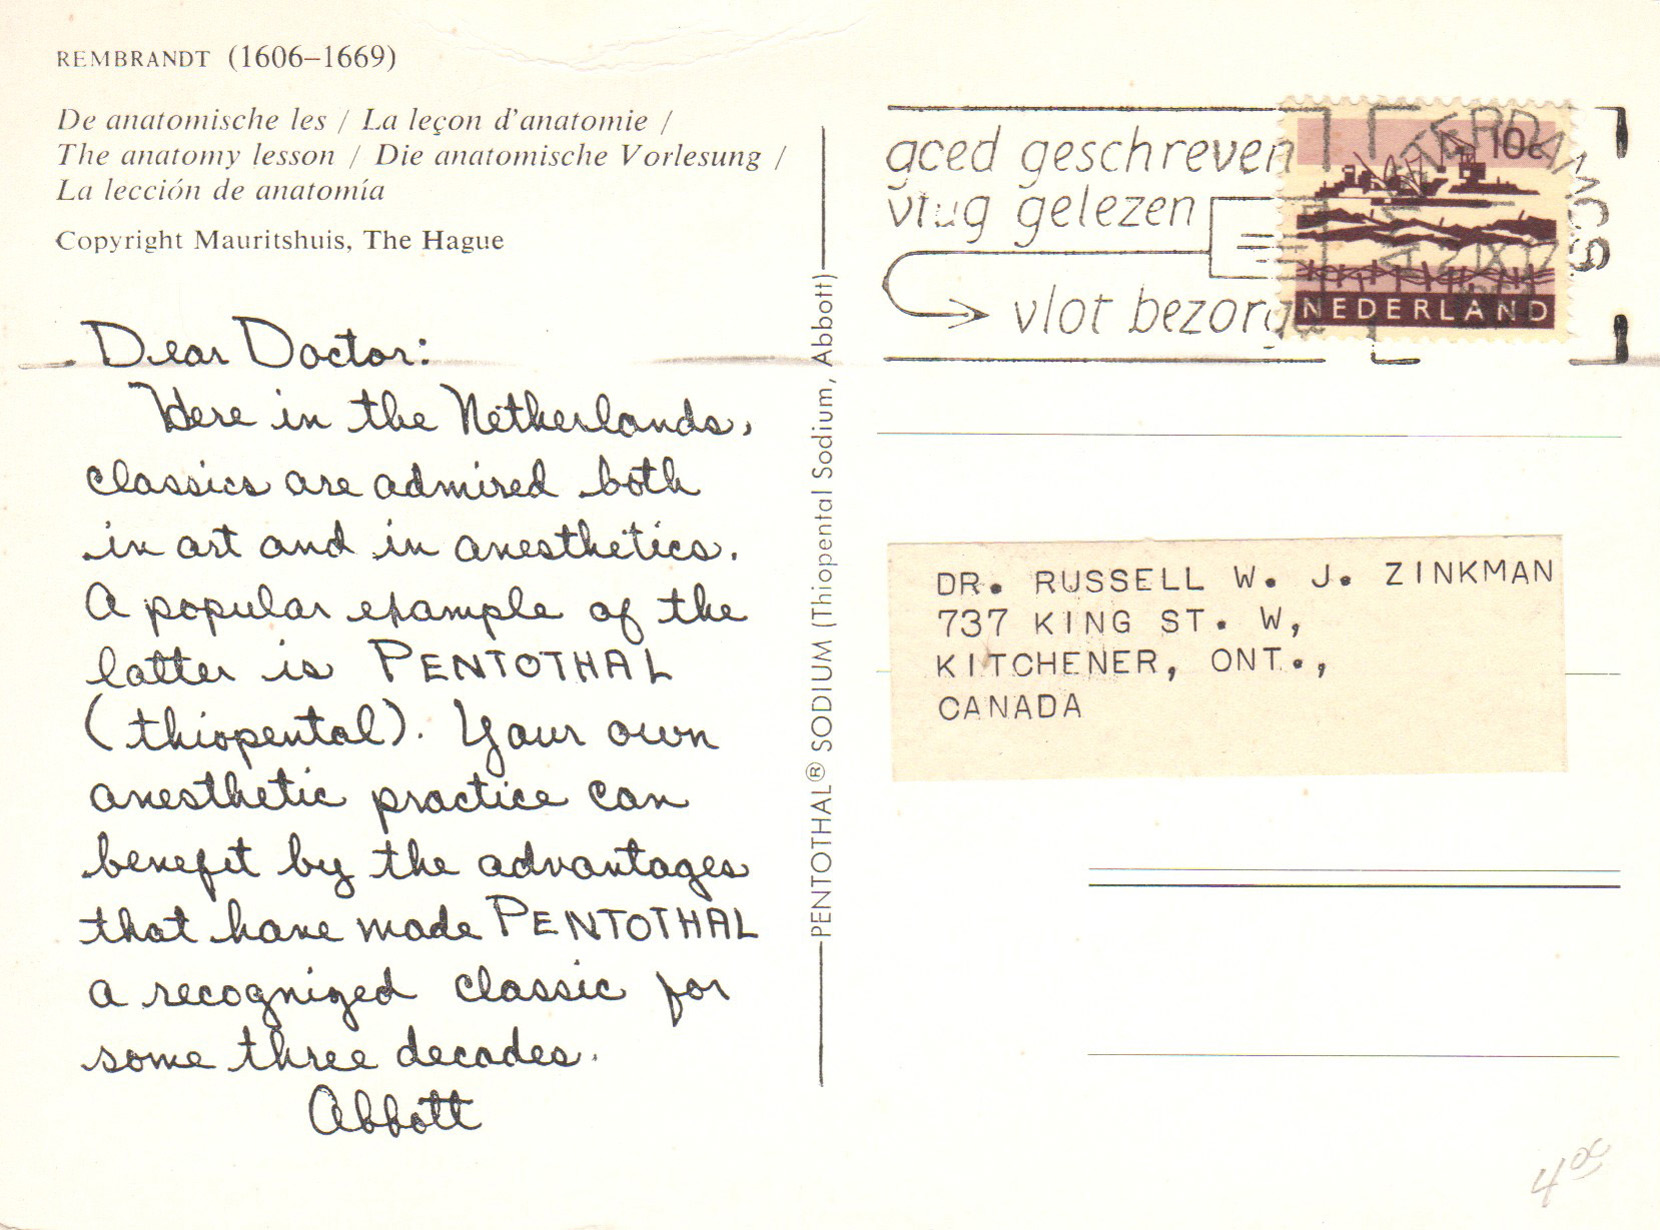 REMBRANDT (1606–1669)
De anatomische les / La leçon d'anatomie /
The anatomy lesson / Die anatomische Vorlesung /
La lección de anatomía
Copyright Mauritshuis, The Hague
Dear Doctor:
Here in the Netherlands,
classics are admired both
in art and in anesthetics.
A popular example of the
latter is PENTOTHAL
(thiopental). Your own
anesthetic practice can
benefit by the advantages
that have made PENTOTHAL
a recognized classic for
some three decades.
Abbott
PENTOTHAL® SODIUM (Thiopental Sodium, Abbott)
goed geschreven
vlug gelezen
vlot bezorgd
10c
NEDERLAND
AMSTERDAM CS
DR. RUSSELL W. J. ZINKMAN
737 KING ST. W,
KITCHENER, ONT.,
CANADA
4.00